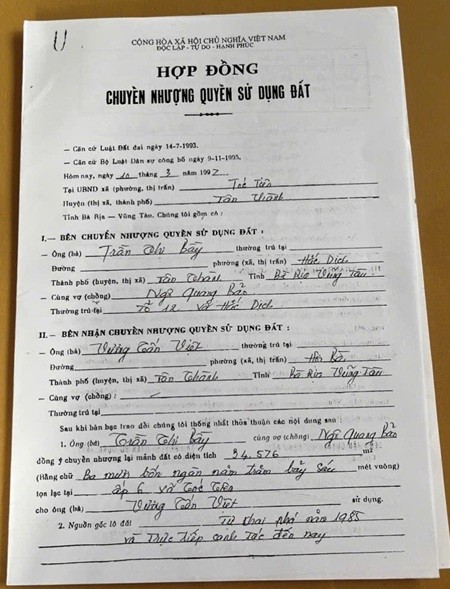 CỘNG HÒA XÃ HỘI CHỦ NGHĨA VIỆT NAM
ĐỘC LẬP - TỰ DO - HẠNH PHÚC
HỢP ĐỒNG
CHUYỂN NHƯỢNG QUYỀN SỬ DỤNG ĐẤT
— Căn cứ Luật Đất đai ngày 14-7-1993.
— Căn cứ Bộ Luật Dân sự công bố ngày 9-11-1995.
Hôm nay, ngày 10 tháng 3 năm 1997
Tại UBND xã (phường, thị trấn) Tóc Tiên
Huyện (thị xã, thành phố) Tân Thành
Tỉnh Bà Rịa — Vũng Tàu. Chúng tôi gồm có :
I.— BÊN CHUYỂN NHƯỢNG QUYỀN SỬ DỤNG ĐẤT :
— Ông (bà) Trần Thị Bảy thường trú tại
Đường phường (xã, thị trấn) Hắc Dịch
Thành phố (huyện, thị xã) Tân Thành Tỉnh Bà Rịa Vũng Tàu
— Cùng vợ (chồng) Ngô Quang Bảo
Thường trú tại Tổ 12 xã Hắc Dịch
II. — BÊN NHẬN CHUYỂN NHƯỢNG QUYỀN SỬ DỤNG ĐẤT :
— Ông (bà) Vương Tấn Việt thường trú tại
Đường phường (xã, thị trấn)
Thành phố (huyện, thị xã) Tân Thành Tỉnh Bà Rịa Vũng Tàu
— Cùng vợ (chồng) :
Thường trú tại
Sau khi bàn bạc trao đổi chúng tôi thống nhất thỏa thuận các nội dung sau :
1. Ông (bà) Trần Thị Bảy cùng vợ (chồng) Ngô Quang Bảo
đồng ý chuyển nhượng lại mảnh đất có diện tích 34.576 m2
(Bằng chữ Ba mươi bốn ngàn năm trăm bảy sáu mét vuông)
tọa lạc tại ấp 6 xã Tóc Tiên
cho ông (bà) Vương Tấn Việt sử dụng.
2. Nguồn gốc lô đất Tự khai phá năm 1985
và trực tiếp canh tác đến nay